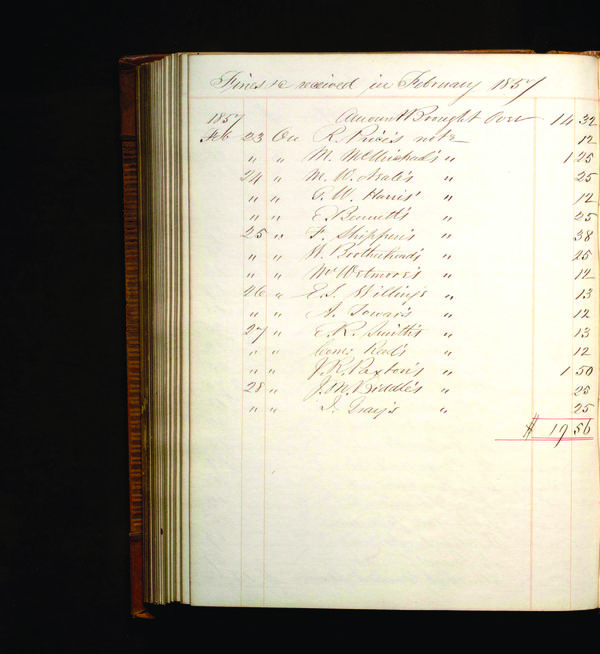 Fines &c received in February 1857
1857 Amount Brought Over 14 32
Feb 23 On R. Price's note 12
" " M. McMichael's " 1 25
24 " M. W. " 25
" " C. W. Harris' " 12
" " E. Bennett's " 25
25 " F. Shippen's " 38
" " W. Brotherhead's " 25
" " Mr Wetmore's " 12
26 " E. S. Willing's " 13
" " A. " 12
27 " E. K. Smith's " 13
" " Com: Read's " 12
" " J. R. Paxton's " 1 50
28 " J. W. Biddle's " 25
" " I. Gray's " 25
$ 19 56